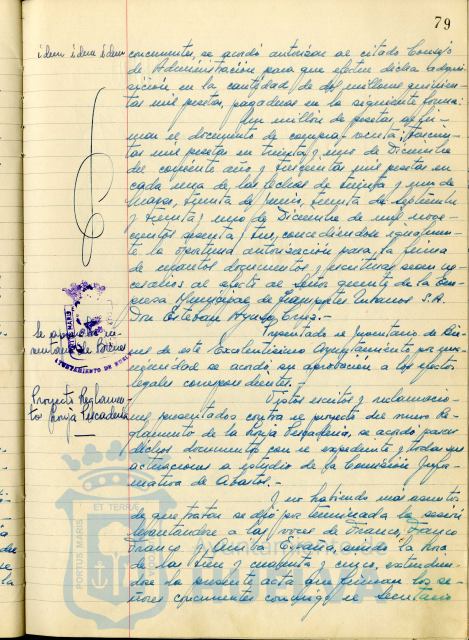 79
idem idem idem
concurrentes, se acordó autorizar al citado Consejo
de Administración para que efectue dicha adqui-
sición en la cantidad de dos millones quinien-
tas mil pesetas, pagaderas en la siguiente forma:
Un millón de pesetas al fir-
mar el documento de compra-venta; trescien-
tas mil pesetas en treinta y uno de Diciembre
del corriente año y trescientas mil pesetas en
cada una de las fechas de treinta y uno de
Marzo, treinta de Junio, treinta de Septiembre
y treinta y uno de Diciembre de mil nove-
cientos sesenta y tres, concediendose igualmen-
te la oportuna autorización para la firma
de cuantos documentos y escrituras sean ne-
cesarios al efecto al Señor gerente de la Em-
presa Municipal de Transportes Urbanos S.A.
Don Esteban Cruz.-
Se aprueba in-
ventario de Bienes
Presentado el Inventario de Bie-
nes de este Excelentísimo Ayuntamiento por una-
nimidad se acordó su aprobación a los efectos
legales correspondientes.
Proyecto Reglamen-
to Lonja Pescadería
Vistos escritos y reclamacio-
nes presentados contra el proyecto del nuevo Re-
glamento de la Lonja Pescadería, se acordó pasar
dichos documentos con el expediente y todas sus
actuaciones a estudio de la Comisión Infor-
mativa de Abastos.-
Y no habiendo más asuntos
de que tratar se dió por terminada la sesión
levantandose a las voces de Franco, Franco
Franco y Arriba España, siendo la hora
de las y cuarenta y cinco, extendien-
dose la presente acta que firman los se-
ñores concurrentes conmigo el Secretario
AYUNTAMIENTO DE HUELVA
PORTUS MARIS
ET TERRAE